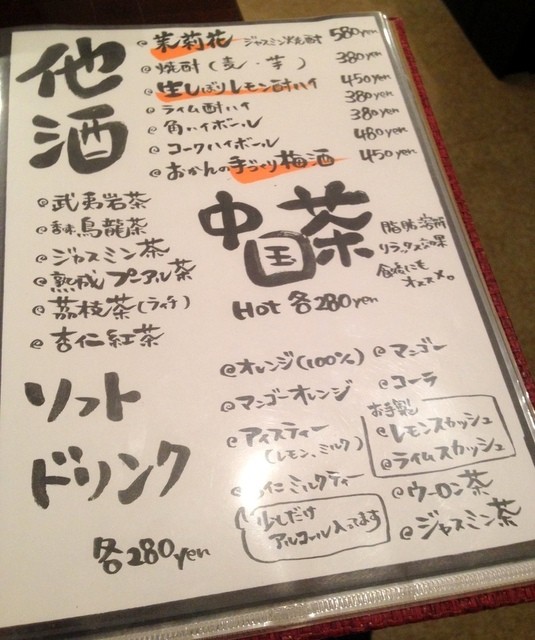 他酒
@茉莉花 ジャスミン焼酎 580yen
@焼酎(麦・芋) 380yen
@生しぼりレモン酎ハイ 450yen
@ライム酎ハイ 380yen
@角ハイボール 380yen
@コークハイボール 480yen
@おかんの手づくり梅酒 450yen
中国茶
Hot 各280yen
脂肪溶解
リラックス効果
食後にも
オススメ。
@武夷岩茶
@烏龍茶
@ジャスミン茶
@熟成プーアル茶
@荔枝茶(ライチ)
@杏仁紅茶
ソフト
ドリンク
各280yen
@オレンジ(100%)
@マンゴーオレンジ
@アイスティー
(レモン、ミルク)
仁ミルクティー
少しだけ
アルコール入ってます
@マンゴー
@コーラ
お手製
@レモンスカッシュ
@ライムスカッシュ
@ウーロン茶
@ジャスミン茶